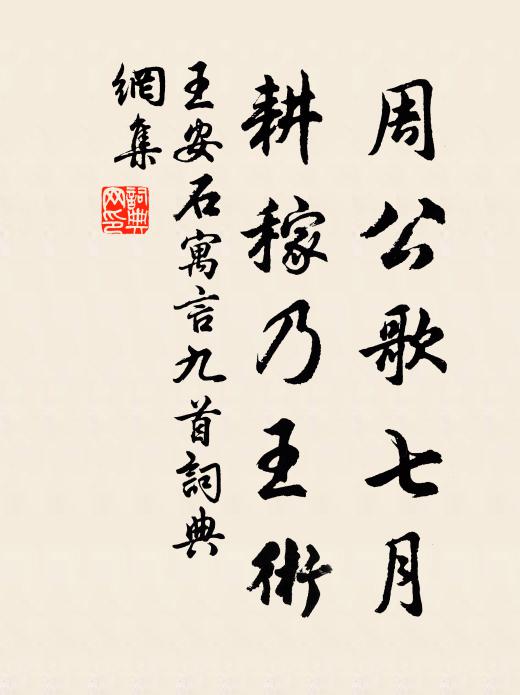 周公歌七月
耕稼乃王術
王安石寓言九首詞典
網集
詞典
网印